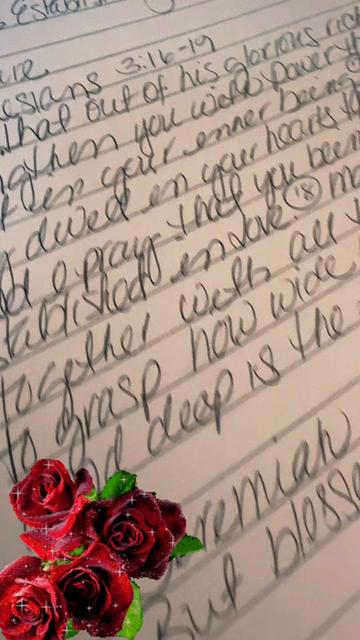 Establis
esians 3:16-19
that out of his glorious ri
ngthen you with power th
t in your enner being
dwell en your hearts th
d I pray that you bein
tablished en love. 18 ma
together with all t
to grasp how wide
d deep is the
eremiah
But blesse